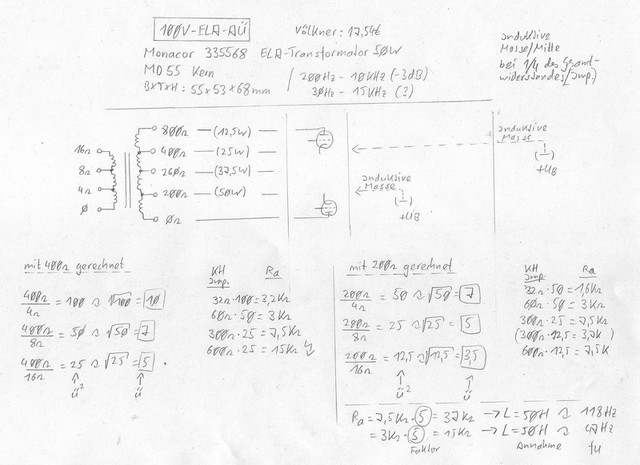 100V-ELA-AÜ
Völkner: 17,54€
Monacor 335568 ELA-Transformator 50W
MD55 Kern
200Hz - 10KHz (-3dB)
BxTxH: 55x53x68mm
30Hz - 15KHz (?)
induktive
Masse/Mitte
bei 1/4 des Gesamt-
widerstandes/Imp.
16Ω
8Ω
4Ω
Ø
800Ω (12,5W)
400Ω (25W)
260Ω (37,5W)
200Ω (50W)
0Ω
induktive
Masse
+UB
induktive
Masse
+UB
mit 400Ω gerechnet
400Ω/4Ω = 100 ≈ √100 = 10
400Ω/8Ω = 50 ≈ √50 = 7
400Ω/16Ω = 25 ≈ √25 = 5
ü² ü
KH Imp. Ra
32Ω·100 = 3,2KΩ
60Ω·50 = 3KΩ
300Ω·25 = 7,5KΩ
600Ω·25 = 15KΩ
mit 200Ω gerechnet
200Ω/4Ω = 50 ≈ √50 = 7
200Ω/8Ω = 25 ≈ √25 = 5
200Ω/16Ω = 12,5 ≈ √12,5 = 3,5
ü² ü
KH Imp. Ra
32Ω·50 = 1,6KΩ
60Ω·50 = 3KΩ
300Ω·25 = 7,5KΩ
(300Ω·12,5 = 3,7K
600Ω·12,5 = 7,5K
Ra = 7,5KΩ·5 = 37KΩ → L=50H ≈ 118Hz
= 3KΩ·5 = 15KΩ → L=50H ≈ 47Hz
Faktor Annahme fu